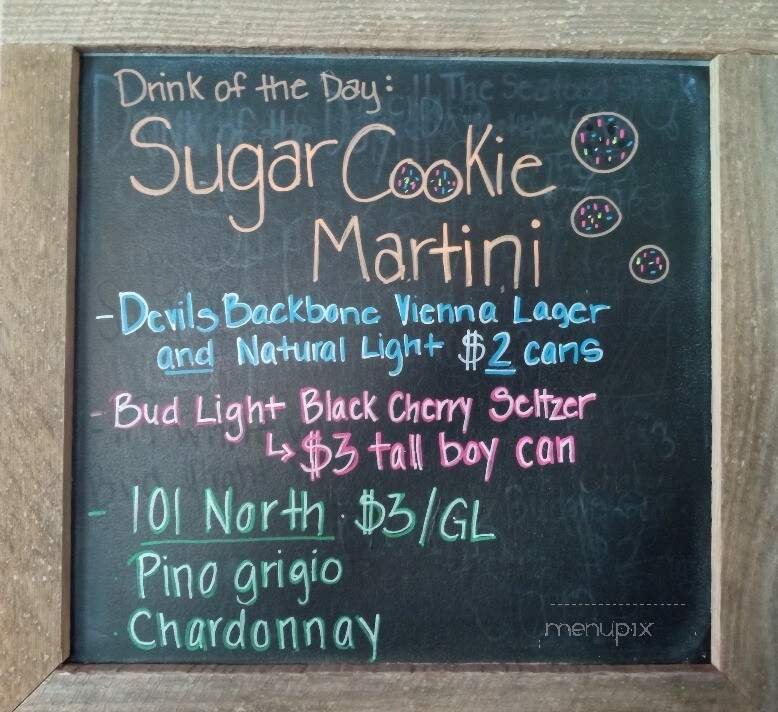 Drink of the Day:
Sugar Cookie
Martini
- Devils Backbone Vienna Lager
and Natural Light $2 cans
- Bud Light Black Cherry Seltzer
↳ $3 tall boy can
- 101 North · $3/GL
Pino grigio
· Chardonnay
menupix